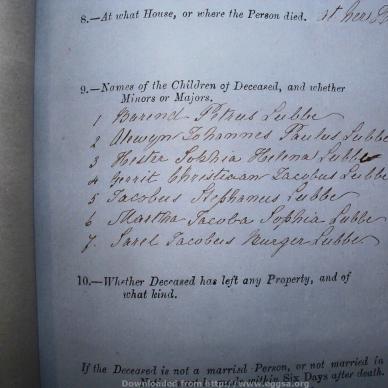 8.—At what House, or where the Person died. at her
9.—Names of the Children of Deceased, and whether
Minors or Majors.
1 Barend Petrus Lubbe
2 Alewyn Johannes Paulus Lubbe
3 Hester Sophia Helena Lubbe
4 Gerrit Christiaan Jacobus Lubbe
5 Jacobus Stephanus Lubbe
6 Martha Jacoba Sophia Lubbe
7. Sarel Jacobus Burger Lubbe
10.—Whether Deceased has left any Property, and of
what kind.
If the Deceased is not a married Person, or not married in
within Six Days after death.
Downloaded from https://www.eggsa.org